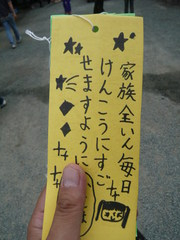 家族全いん毎日
けんこうにすご
せますように